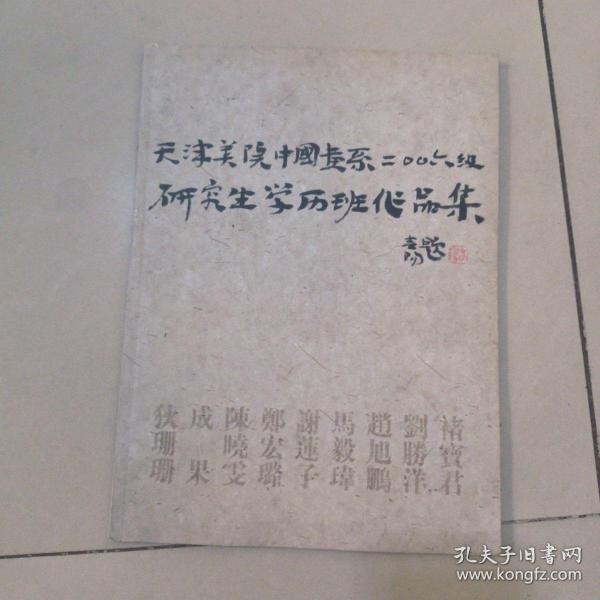 天津美院中國畫系二〇〇六级
研究生学历班作品集
題
褚寶君
劉勝洋
趙旭鵬
馬毅瑋
謝蓮子
鄭宏璐
陳曉雯
成果
狄珊珊
孔夫子旧书网
www.kongfz.com